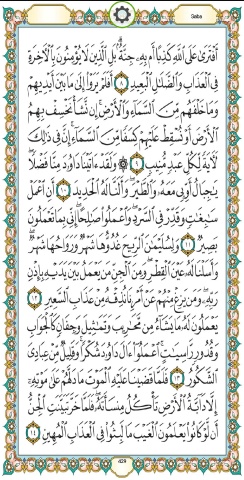 Saba
أَفْتَرَىٰ عَلَى ٱللَّهِ كَذِبًا أَم بِهِۦ جِنَّةٌۢ بَلِ ٱلَّذِينَ لَا يُؤْمِنُونَ بِٱلْءَاخِرَةِ
فِى ٱلْعَذَابِ وَٱلضَّلَٰلِ ٱلْبَعِيدِ ٨ أَفَلَمْ يَرَوْا۟ إِلَىٰ مَا بَيْنَ أَيْدِيهِمْ
وَمَا خَلْفَهُم مِّنَ ٱلسَّمَآءِ وَٱلْأَرْضِ إِن نَّشَأْ نَخْسِفْ بِهِمُ
ٱلْأَرْضَ أَوْ نُسْقِطْ عَلَيْهِمْ كِسَفًا مِّنَ ٱلسَّمَآءِ إِنَّ فِى ذَٰلِكَ
لَءَايَةً لِّكُلِّ عَبْدٍ مُّنِيبٍ ٩ ۞ وَلَقَدْ ءَاتَيْنَا دَاوُۥدَ مِنَّا فَضْلًا
يَٰجِبَالُ أَوِّبِى مَعَهُۥ وَٱلطَّيْرَ وَأَلَنَّا لَهُ ٱلْحَدِيدَ ١٠ أَنِ ٱعْمَلْ
سَٰبِغَٰتٍ وَقَدِّرْ فِى ٱلسَّرْدِ وَٱعْمَلُوا۟ صَٰلِحًا إِنِّى بِمَا تَعْمَلُونَ
بَصِيرٌ ١١ وَلِسُلَيْمَٰنَ ٱلرِّيحَ غُدُوُّهَا شَهْرٌ وَرَوَاحُهَا شَهْرٌ
وَأَسَلْنَا لَهُۥ عَيْنَ ٱلْقِطْرِ وَمِنَ ٱلْجِنِّ مَن يَعْمَلُ بَيْنَ يَدَيْهِ بِإِذْنِ
رَبِّهِۦ وَمَن يَزِغْ مِنْهُمْ عَنْ أَمْرِنَا نُذِقْهُ مِنْ عَذَابِ ٱلسَّعِيرِ ١٢
يَعْمَلُونَ لَهُۥ مَا يَشَآءُ مِن مَّحَٰرِيبَ وَتَمَٰثِيلَ وَجِفَانٍ كَٱلْجَوَابِ
وَقُدُورٍ رَّاسِيَٰتٍ ٱعْمَلُوٓا۟ ءَالَ دَاوُۥدَ شُكْرًا وَقَلِيلٌ مِّنْ عِبَادِىَ
ٱلشَّكُورُ ١٣ فَلَمَّا قَضَيْنَا عَلَيْهِ ٱلْمَوْتَ مَا دَلَّهُمْ عَلَىٰ مَوْتِهِۦٓ
إِلَّا دَآبَّةُ ٱلْأَرْضِ تَأْكُلُ مِنسَأَتَهُۥ فَلَمَّا خَرَّ تَبَيَّنَتِ ٱلْجِنُّ
أَن لَّوْ كَانُوا۟ يَعْلَمُونَ ٱلْغَيْبَ مَا لَبِثُوا۟ فِى ٱلْعَذَابِ ٱلْمُهِينِ ١٤
429